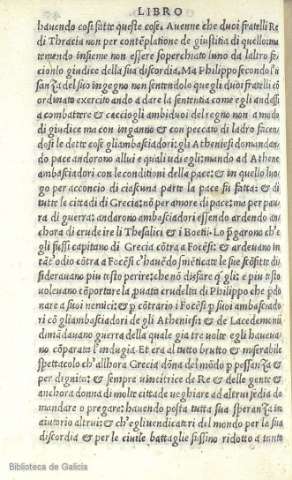 LIBRO
hauendo cosi fatte queste cose. Auenne che duoi fratelli Re
di Thracia non per contēplatione de giustitia di quello, ma
temendo insieme non essere soperchiato luno da laltro fe
cionlo giudice della sua discordia, Ma Philippo secondo l'u
sanza del suo ingegno non sentendolo quegli duoi fratelli cō
ordinato exercito ando a dare la sentētia come egli andassi
a combattere & cacciogli ambiduoi del regno non a modo
di giudice ma con inganno & con peccato di ladro facen
dosi le dette cose gli ambasciadori: gli Atheniesi domandan
do pace andorono allui e quali udi egli: mando ad Athene
ambasciadori con le conditioni della pace: & in quello luo
go per acconcio di ciascuna parte la pace fu fatta: & di
tutte le citadi di Grecia: nō per amore di pace: me per pau
ra di guerra: andorono ambasciadori essendo ardendo an
chora di crudeire li Thesalici & i Boeti. Lo pgarono ch'e
gli fussi capitano di Grecia cōtra a Focēsi: & ardeuano in
tāt'odio cōtra a Focēsi c'hauēdo smēticate le sue scōfitte di
siderauano piu tosto perire: che nō disfare q̄gli: e piu tosto
voleuano cōportare la puata crudelta di Philippo che pdo
nare a suoi nemici: & p cōtrario i Focēsi p suoi ambasciado
ri cō gli ambasciadori de gli Atheniesi & de Lacedemoni
dimādauano guerra della quale gia tre volte egli haueua
no cōparata l'indugia. Et era al tutto brutto & miserabile
spettacolo ch'allhora Grecia dōna del mōdo p possanza &
per dignita: & sempre uincitrice de Re & delle gente &
anchora donna di molte citade ueghiare ad altrui sedia do
mandare o pregare: hauendo posta tutta sua speranza in
aiutorio altrui: & ch'egli uendicatori del mondo per la sua
discordia & per le ciuile battaglie fussino ridotto a tanto
Biblioteca de Galicia